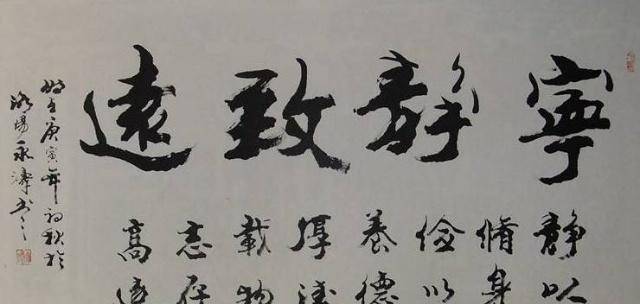 寧靜致遠
靜以
脩身
儉以
養德
厚德
載物
志存
高遠
庚寅年初秋於
洛陽永濤书